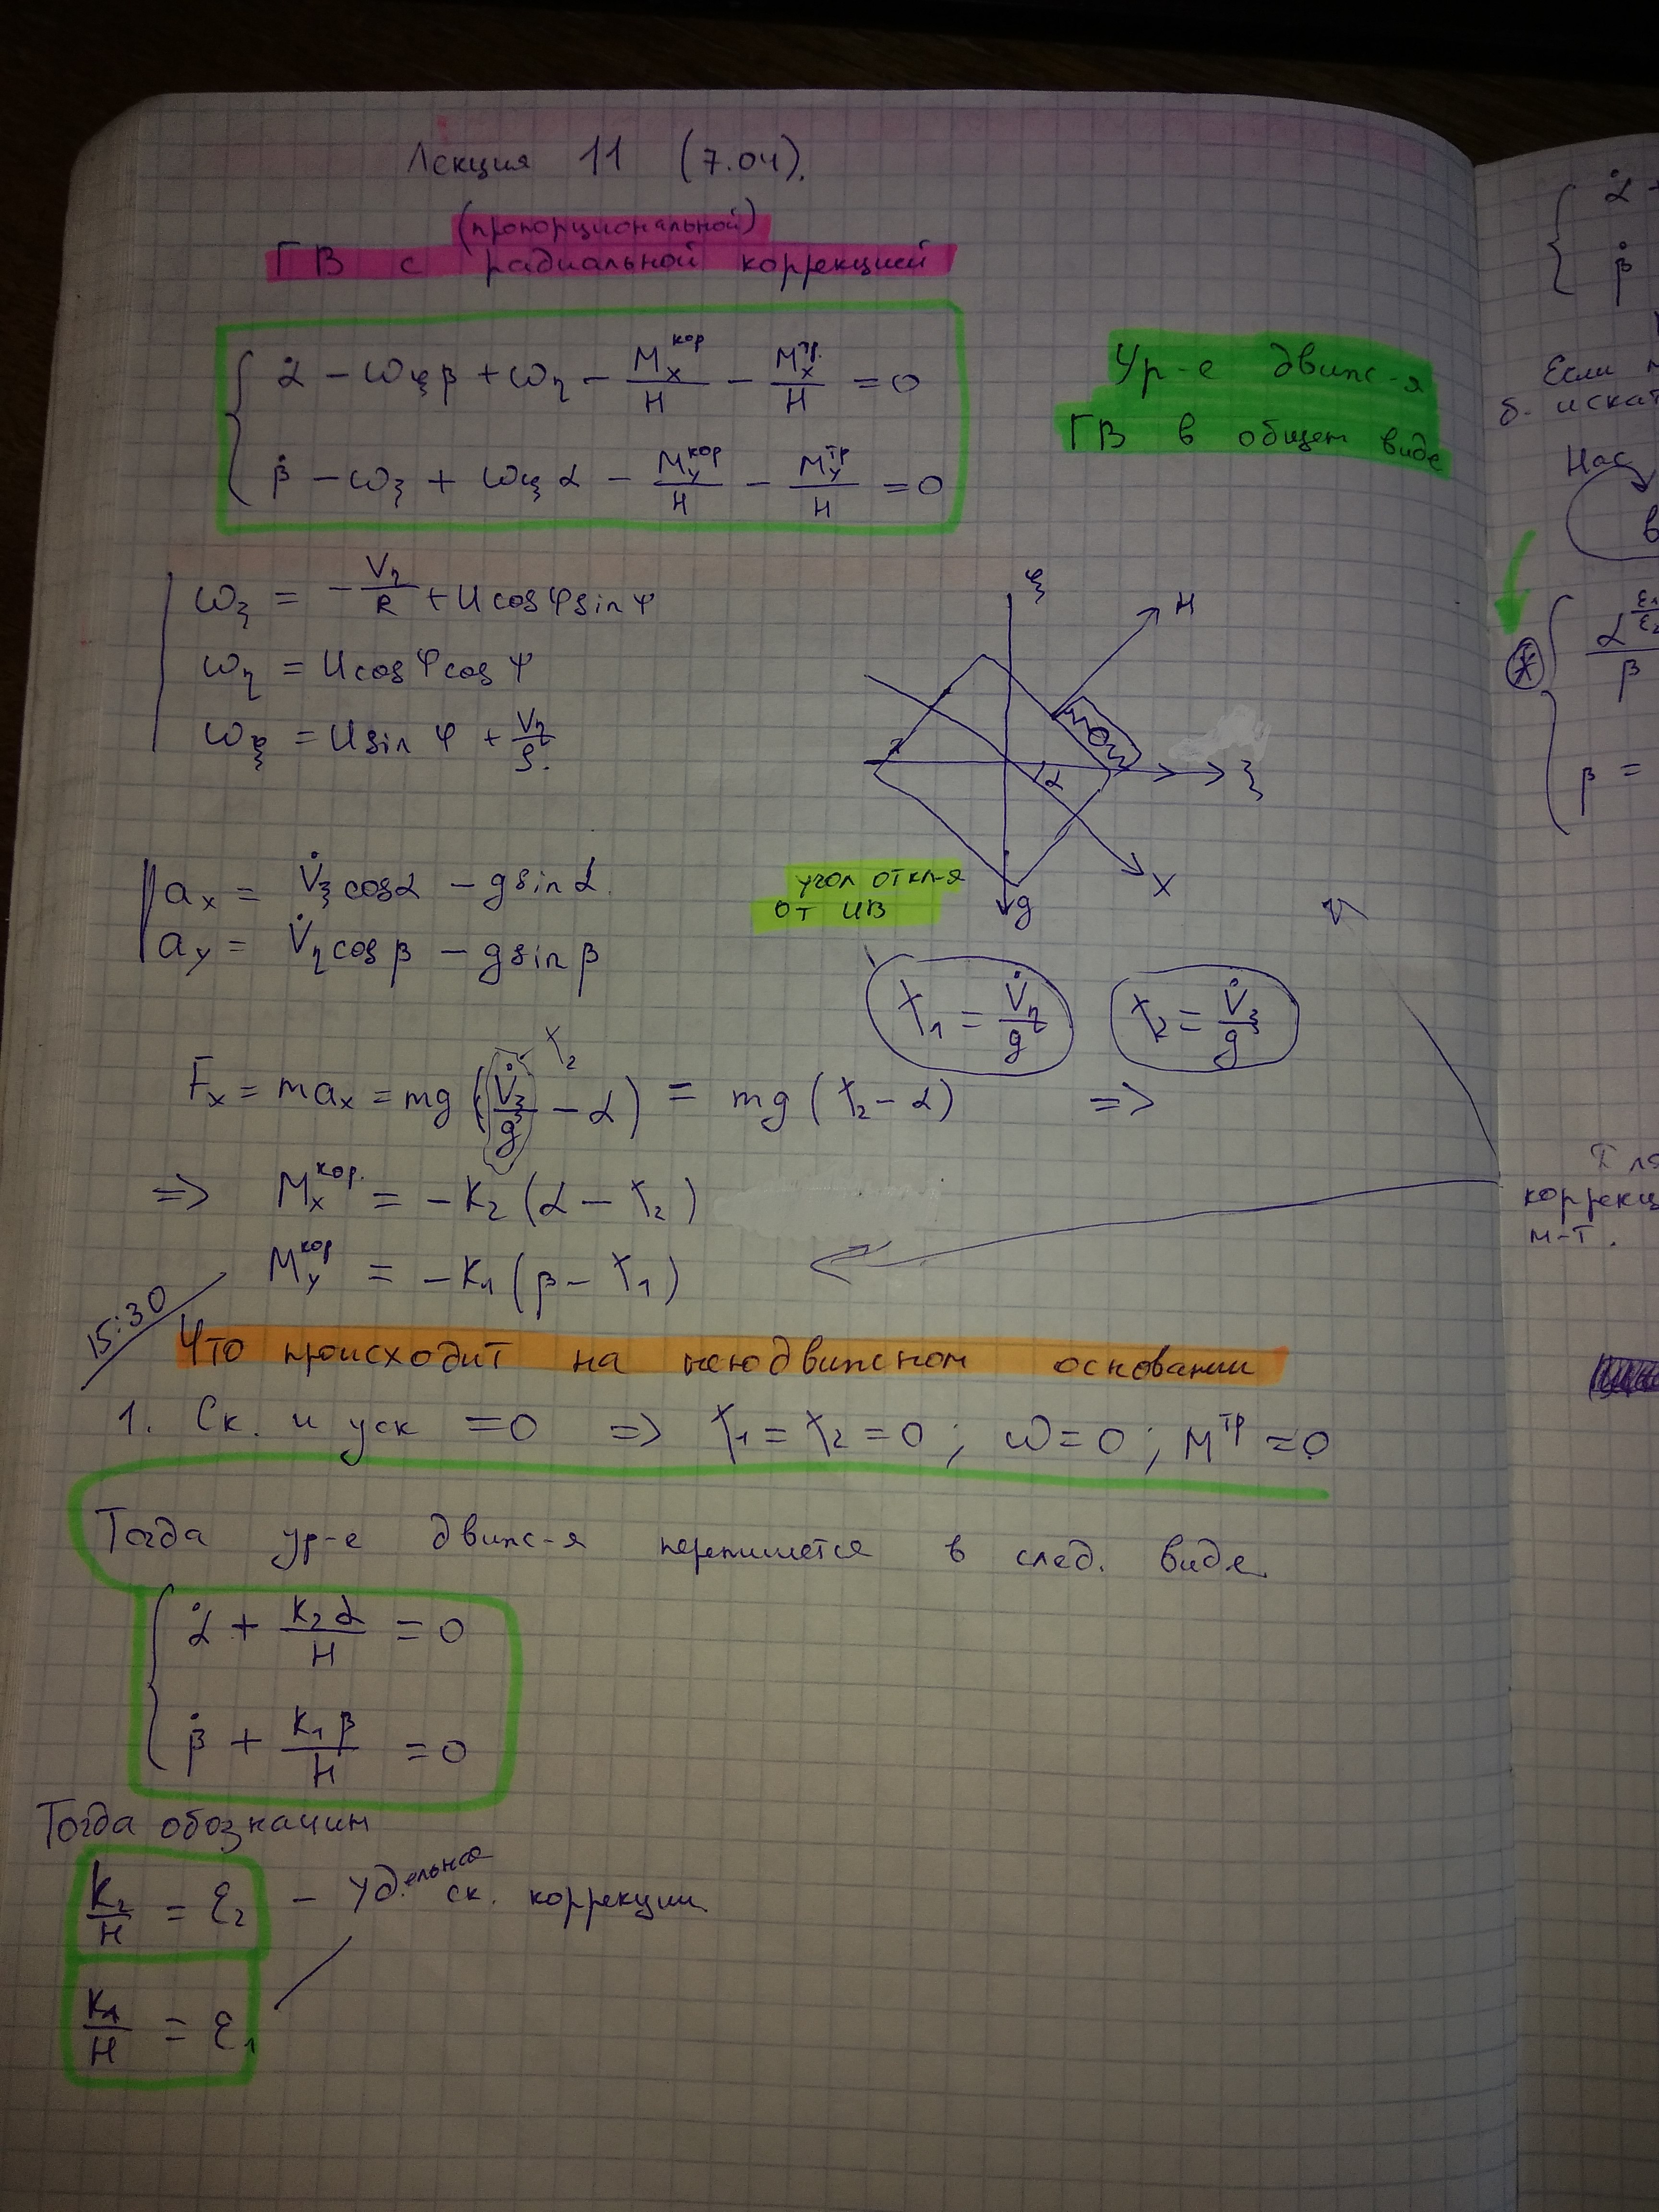 Лекция 11 (7.04).
(пропорциональной)
ГВ с радиальной коррекцией
α̇ − ωξβ + ωη − Mxкор/H − Mxтр./H = 0
β̇ − ωζ + ωξα − Myкор/H − Myтр/H = 0
Ур-е движ-я
ГВ в общем виде
ωζ = −Vη/R + U cosφ sinψ
ωη = U cosφ cosψ
ωξ = U sin φ + Vη/ρ.
ξ
H
α
ζ
X
g
ax = V̇ζ cosα − g sin α.
ay = V̇η cos β − g sin β
угол откл-я
от ИВ
χ1 = V̇η/g
χ2 = V̇ζ/g
χ2
Fx = max = mg (V̇ζ/g − α) = mg (χ2 − α) =>
=> Mxкор. = −K2 (α − χ2)
Myкор = −K1 (β − χ1)
15:30
Что происходит на неподвижном основании
1. Ск. и уск = 0 => χ1 = χ2 = 0 ; ω = 0 ; Mтр = 0
Тогда ур-е движ-я перепишется в след. виде
α̇ + K2α/H = 0
β̇ + K1β/H = 0
Тогда обозначим
K2/H = ε2 − удельная ск. коррекции
K1/H = ε1
α̇
β̇
Если
б. искат
α^(ε1/ε2)/β
β =
коррекц
м-т.